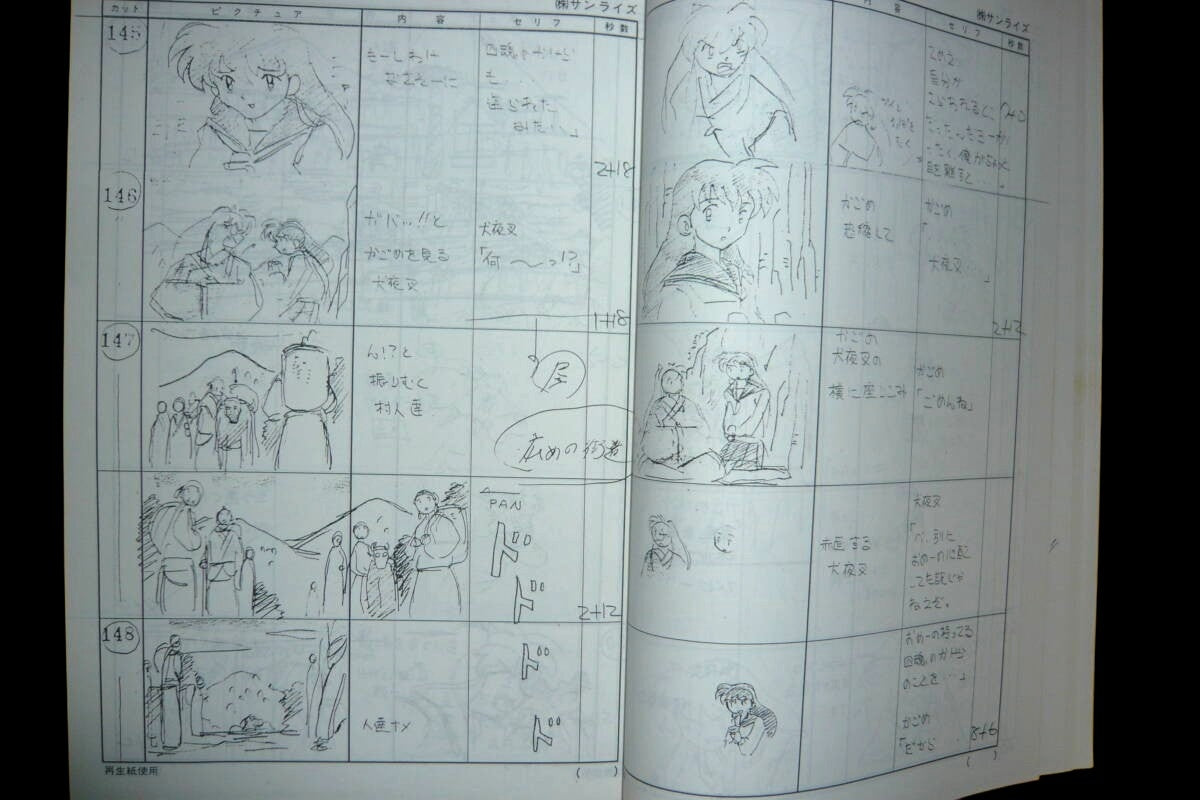 ㈱サンライズ
カット
ピクチュア
内容
セリフ
秒数
145
もーしわけ
なさそーに
四魂のかけら
も…
盗られた
みたい…」
2+18
146
ガバッ!!と
かごめを見る
犬夜叉
犬夜叉
「何〜っ!?」
1+18
147
ん!?と
振りむく
村人達
広めの街道
PAN
ド
ド
2+12
148
人達ナメ
ド
ド
再生紙使用
( )
㈱サンライズ
内容
セリフ
秒数
てめえ、
自分が
かごめ
かごめ
「
犬夜叉…」
2+12
かごめ
犬夜叉の
横に座りこみ
かごめ
「ごめんね」
赤面する
犬夜叉
犬夜叉
「べ、別に
おめーの心配
してた訳じゃ
ねえぞ。
おめーの持ってる
四魂のかけら
のことを…」
かごめ
「だから
8+6
( )